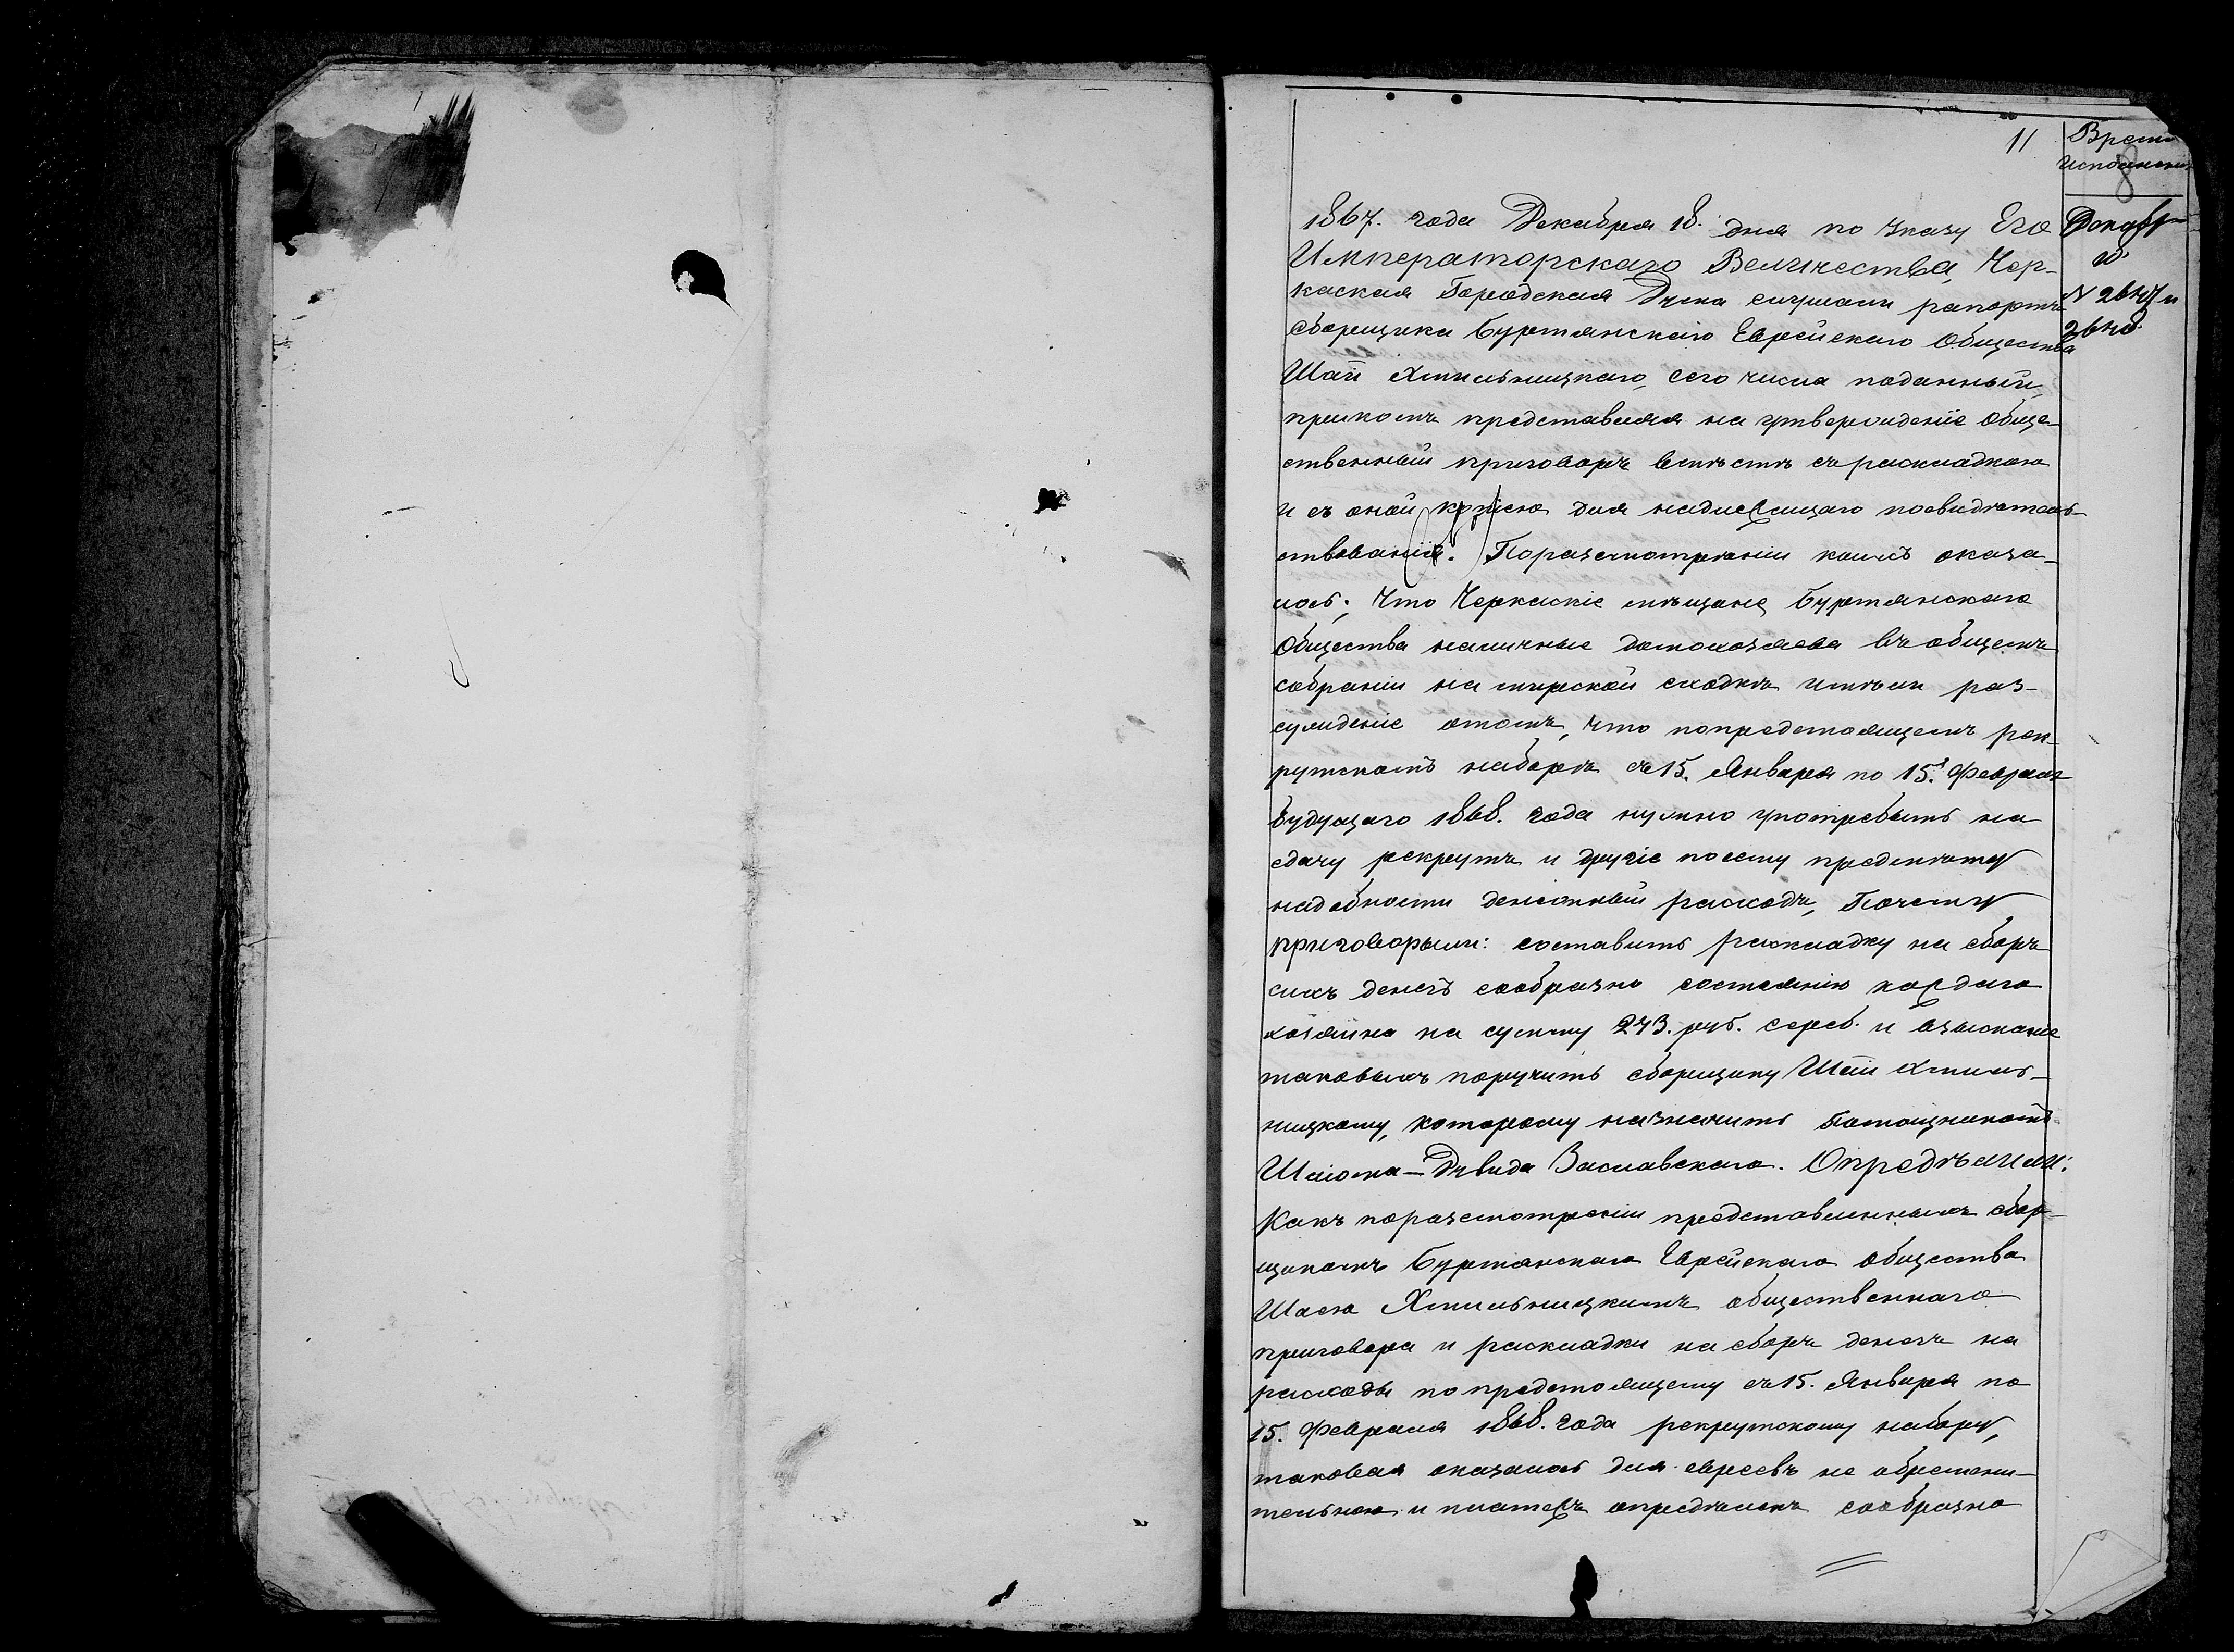 11
Время
исполненія
8
1867. года Декабря 18. дня по указу Его
Императорскаго Величества, Чер-
каская Городская Дума слушали рапортъ
сборщика Буртянскаго Еврейскаго Общества
Шаи Хмильницкаго, сего числа поданный,
прикомъ представляя на утвержденіе обще-
ственный приговоръ вмѣстѣ съ раскладкою
и съ оной копіею для надлежащаго посвидѣтель-
ствованія. Поразсмотрѣніи коихъ оказа-
лось: Что Черкаскіе мѣщане Буртянскаго
Общества наличные домохозяева въ общемъ
собраніи на мирской сходкѣ имѣли раз-
сужденіе отомъ, что попредстоящемъ рек-
рутскомъ наборѣ съ 15. Января по 15. Февраля
будущаго 1868. года нужно употребить на
сдачу рекрутъ и другіе посему предмѣту
надобности денежный расходъ, Почему
приговорили: составить раскладку на сборъ
сихъ денегъ сообразно состоянію каждаго
хозяина на сумму 273. руб. сереб. и взысканіе
таковыхъ поручить сборщику Шаи Хмиль-
ницкому, которому назначить Помощникомъ
Шлиома-Дувида Заславскаго. Опредѣлили:
Какъ поразсмотреніи представленныхъ сбор-
щикомъ Буртянскаго Еврейскаго общества
Шаею Хмильницкимъ общественнаго
приговора и раскладки на сборъ денегъ на
расходы по предстоящему съ 15. Января по
15. Февраля 1868. года рекрутскому набору,
таковая оказалась для евреевъ не обремени-
тельною и платежъ опредѣленъ сообразно
Декабр
18.
N 2647 и
2648.